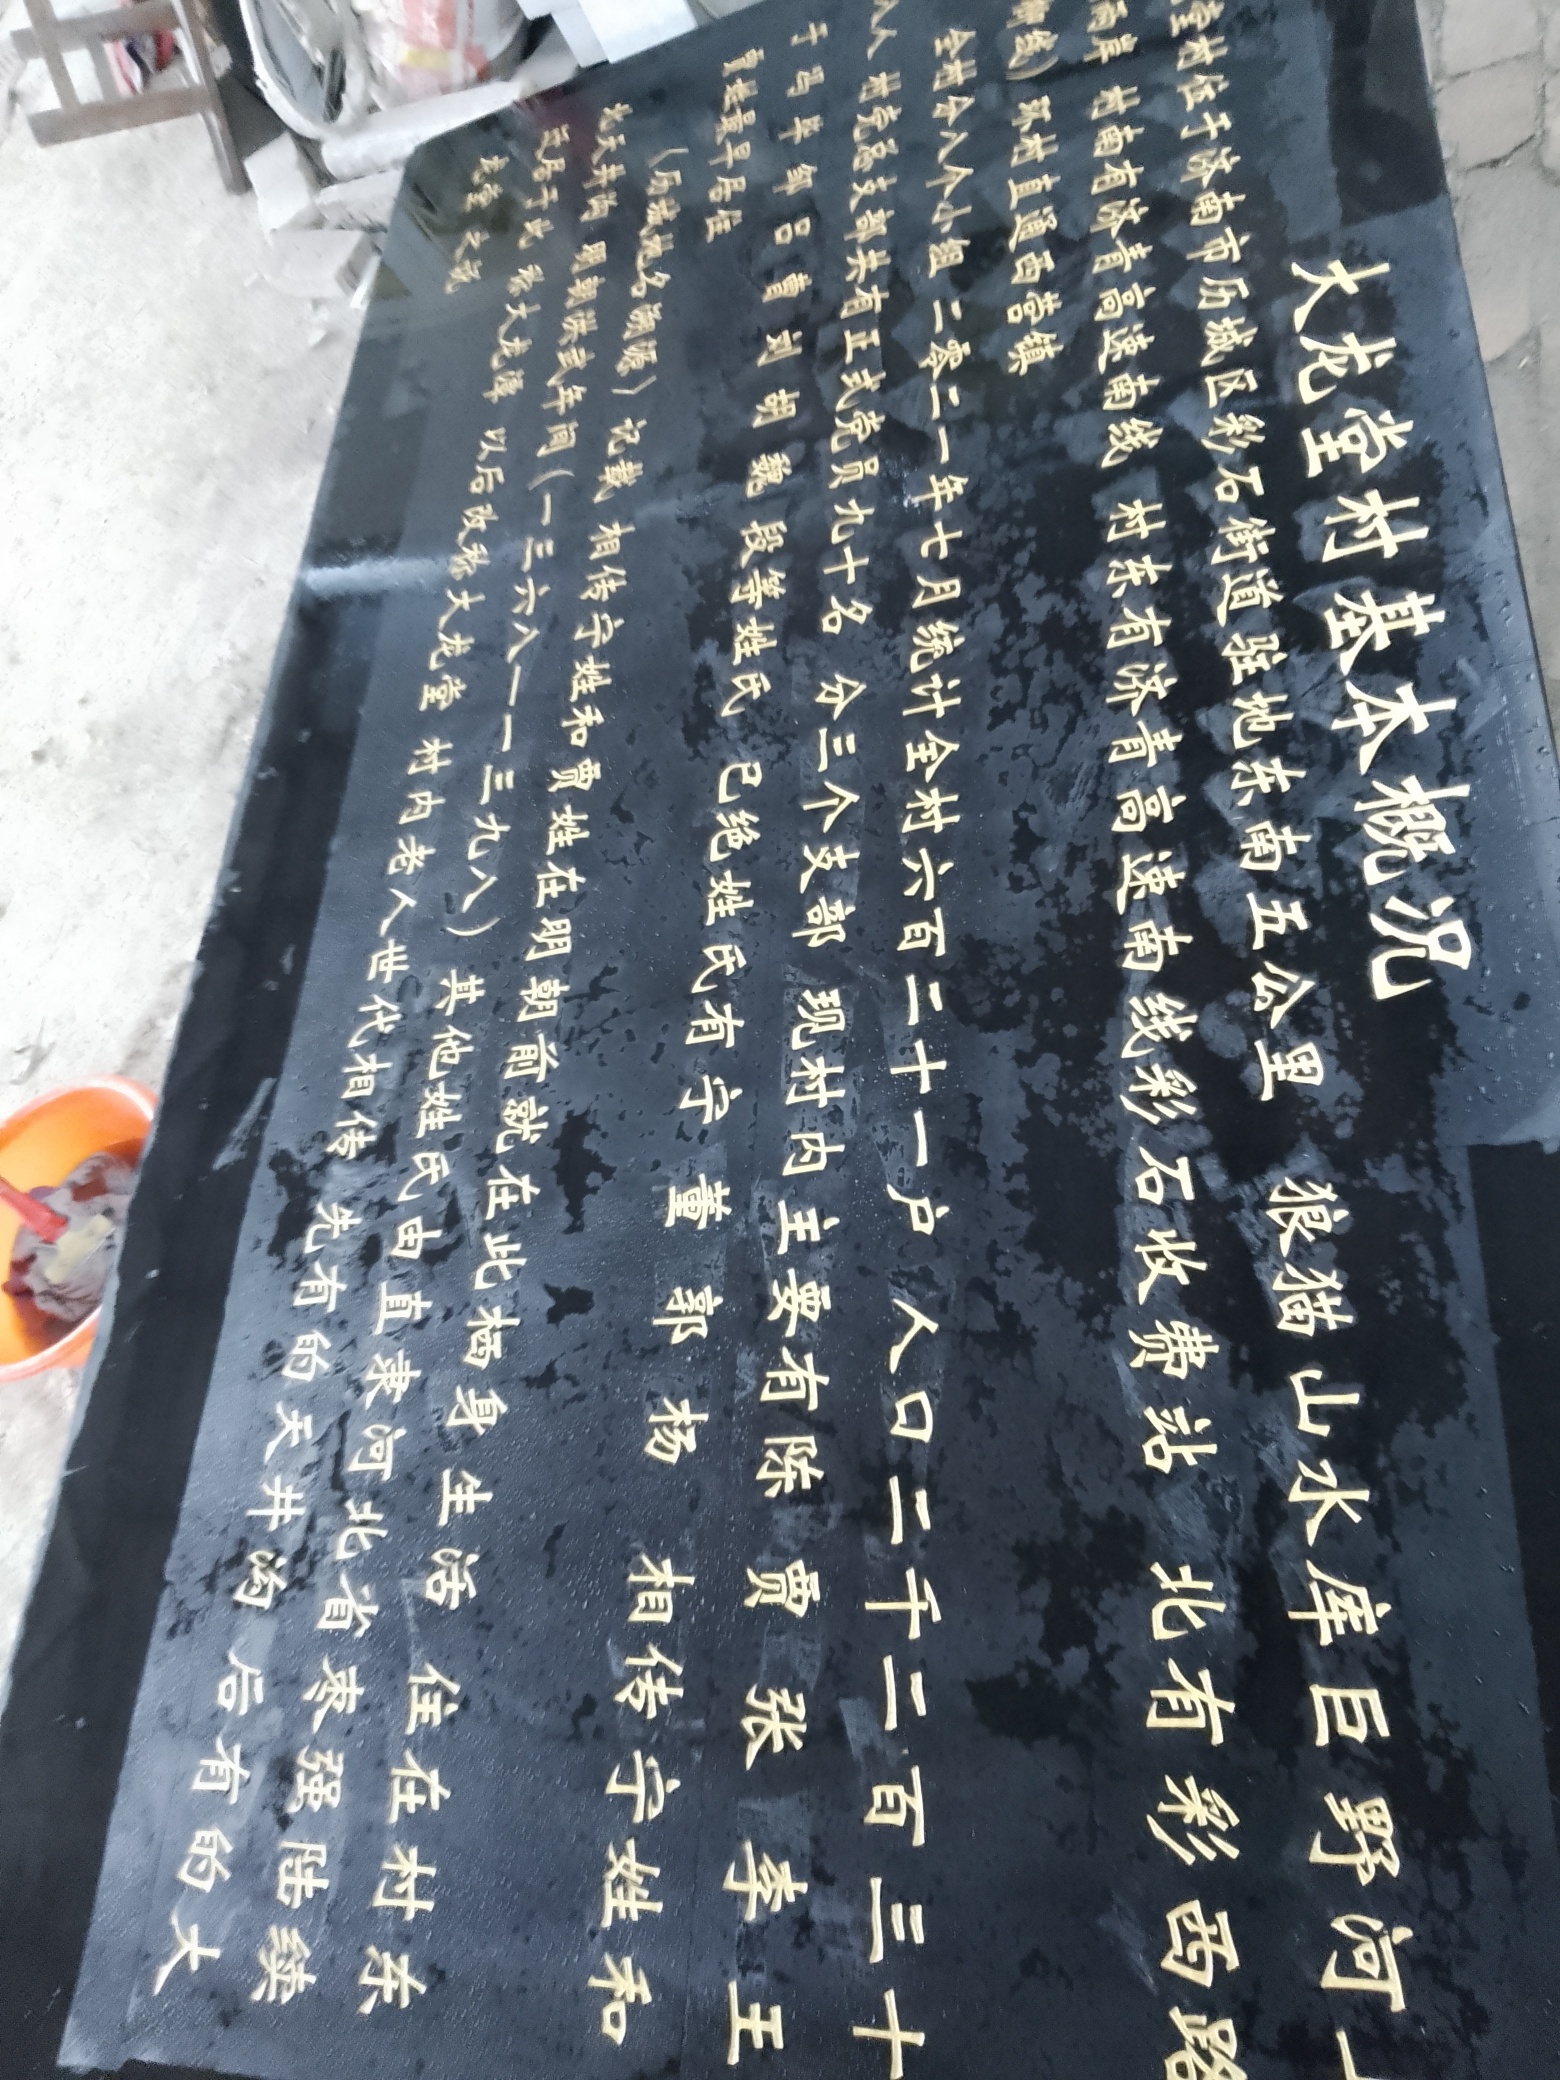 大龙堂村基本概况
堂村位于济南市历城区彩石街道驻地东南五公里 狼猫山水库巨野河一
两岸 村南有济青高速南线 村东有济青高速南线彩石收费站 北有彩西路
柳线） 环村直通西营镇
全村分八个小组 二零二一年七月统计全村六百二十一户 人口二千二百三十
八人 村党总支部共有正式党员九十名 分三个支部 现村内主要有陈 贾 张 李 王
于 冯 毕 邹 吕 曹 刘 胡 魏 段等姓氏 已绝姓氏有宁 董 郭 杨 相传宁姓和
贾姓最早居住
（历城地名溯源）记载 相传宁姓和贾姓在明朝前就在此栖身生活 住在村东
北天井沟 明朝洪武年间（一三六八——一三九八）其他姓氏由直隶河北省枣强陆续
迁居于此 称大龙潭 以后改称大龙堂 村内老人世代相传 先有的天井沟 后有的大
龙堂之说